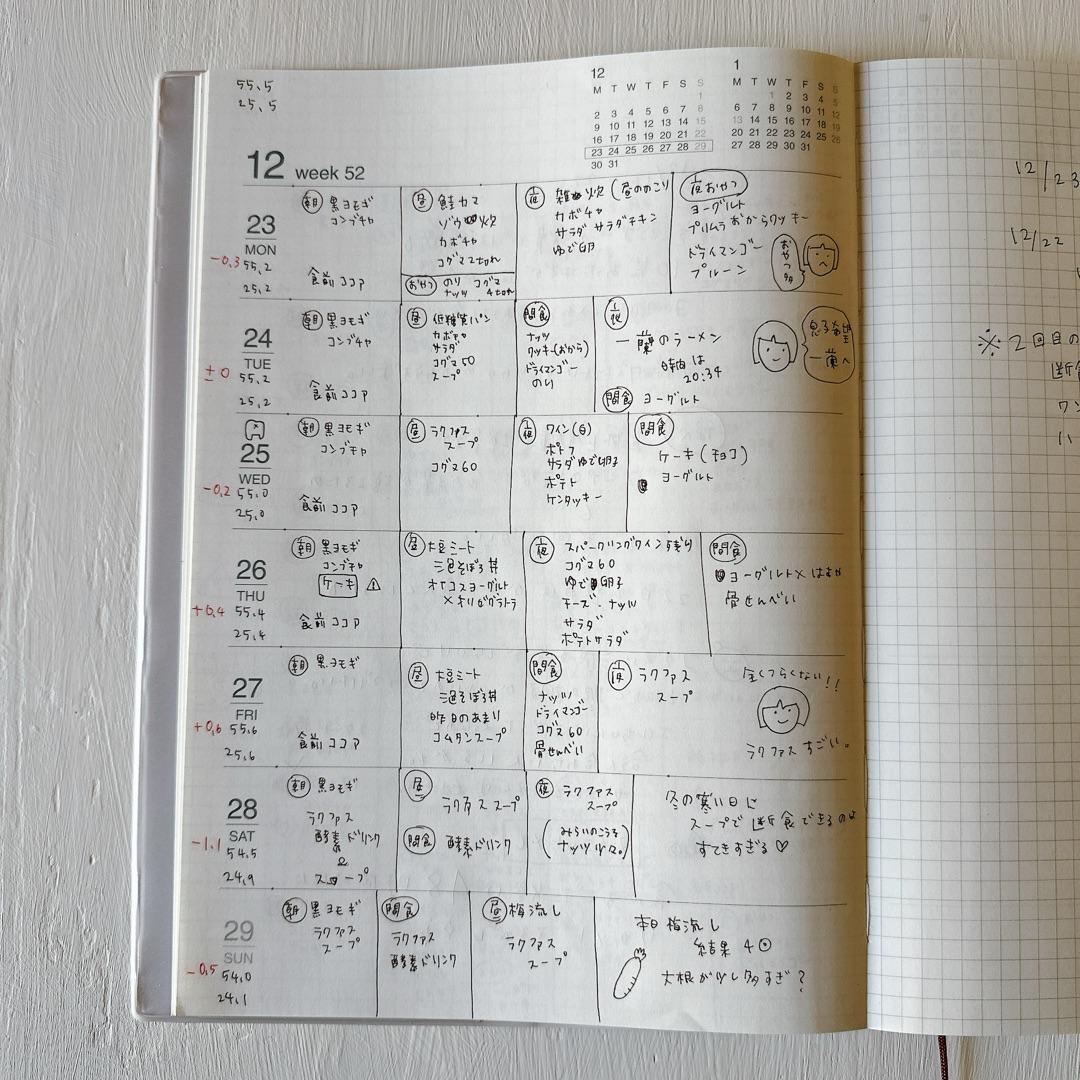 55.5
25.5
12
M T W T F S S
1
2 3 4 5 6 7 8
9 10 11 12 13 14 15
16 17 18 19 20 21 22
23 24 25 26 27 28 29
30 31
1
M T W T F S S
1 2 3 4 5
6 7 8 9 10 11 12
13 14 15 16 17 18 19
20 21 22 23 24 25 26
27 28 29 30 31
12 week 52
23
MON
-0.3
55.2
25.2
朝 黒ヨモギ
コンブチャ
食前 ココア
昼 鮭カマ
ゾウ火
カボチャ
コグマ 2切れ
おやつ のり コグマ
ナッツ 4切れ
夜 雑火 (昼ののこり
カボチャ
サラダ サラダチキン
ゆで卵
夜おやつ
ヨーグルト
プリムラおからクッキー
ドライマンゴー
プルーン
おやつ多
24
TUE
±0
55.2
25.2
朝 黒ヨモギ
コンブチャ
食前 ココア
昼 低糖質パン
カボチャ
サラダ
コグマ 50
スープ
間食
ナッツ
クッキー(おから)
ドライマンゴー
のり
夜
一蘭のラーメン
時間は
20:34
間食 ヨーグルト
息子希望
一蘭へ
25
WED
-0.2
55.0
25.0
朝 黒ヨモギ
コンブチャ
食前 ココア
昼 ラクファス
スープ
コグマ60
夜 ワイン(白)
ポトフ
サラダ ゆで卵子
ポテト
ケンタッキー
間食
ケーキ(チョコ)
ヨーグルト
26
THU
+0.4
55.4
25.4
朝 黒ヨモギ
コンブチャ
ケーキ
食前 ココア
昼 大豆ミート
三色そぼろ丼
オイコスヨーグルト
×キリゼグラトラ
夜 スパークリングワイン残り
コグマ60
ゆで卵子
チーズ・ナッツ
サラダ
ポテトサラダ
間食
ヨーグルト×はちみつ
骨せんべい
27
FRI
+0.6
55.6
25.6
朝 黒ヨモギ
食前 ココア
昼 大豆ミート
三色そぼろ丼
昨日のあまり
コムタンスープ
間食
ナッツ
ドライマンゴー
コグマ 60
骨せんべい
夜 ラクファス
スープ
全くつらくない!!
ラクファスすごい。
28
SAT
-1.1
54.5
24.9
朝 黒ヨモギ
ラクファス
酵素ドリンク
&
スープ
昼
ラクファス スープ
間食 酵素ドリンク
夜 ラクファス
スープ
(みらいのこうそ
ナッツ少々。)
冬の寒い日に
スープで断食できるのは
すてきすぎる♡
29
SUN
-0.5
54.0
24.1
朝 黒ヨモギ
ラクファス
スープ
間食
ラクファス
酵素ドリンク
昼 梅流し
ラクファス
スープ
本日 梅流し
結果 4
大根が少し多すぎ?
12/23
12/22
※2回目の
断食